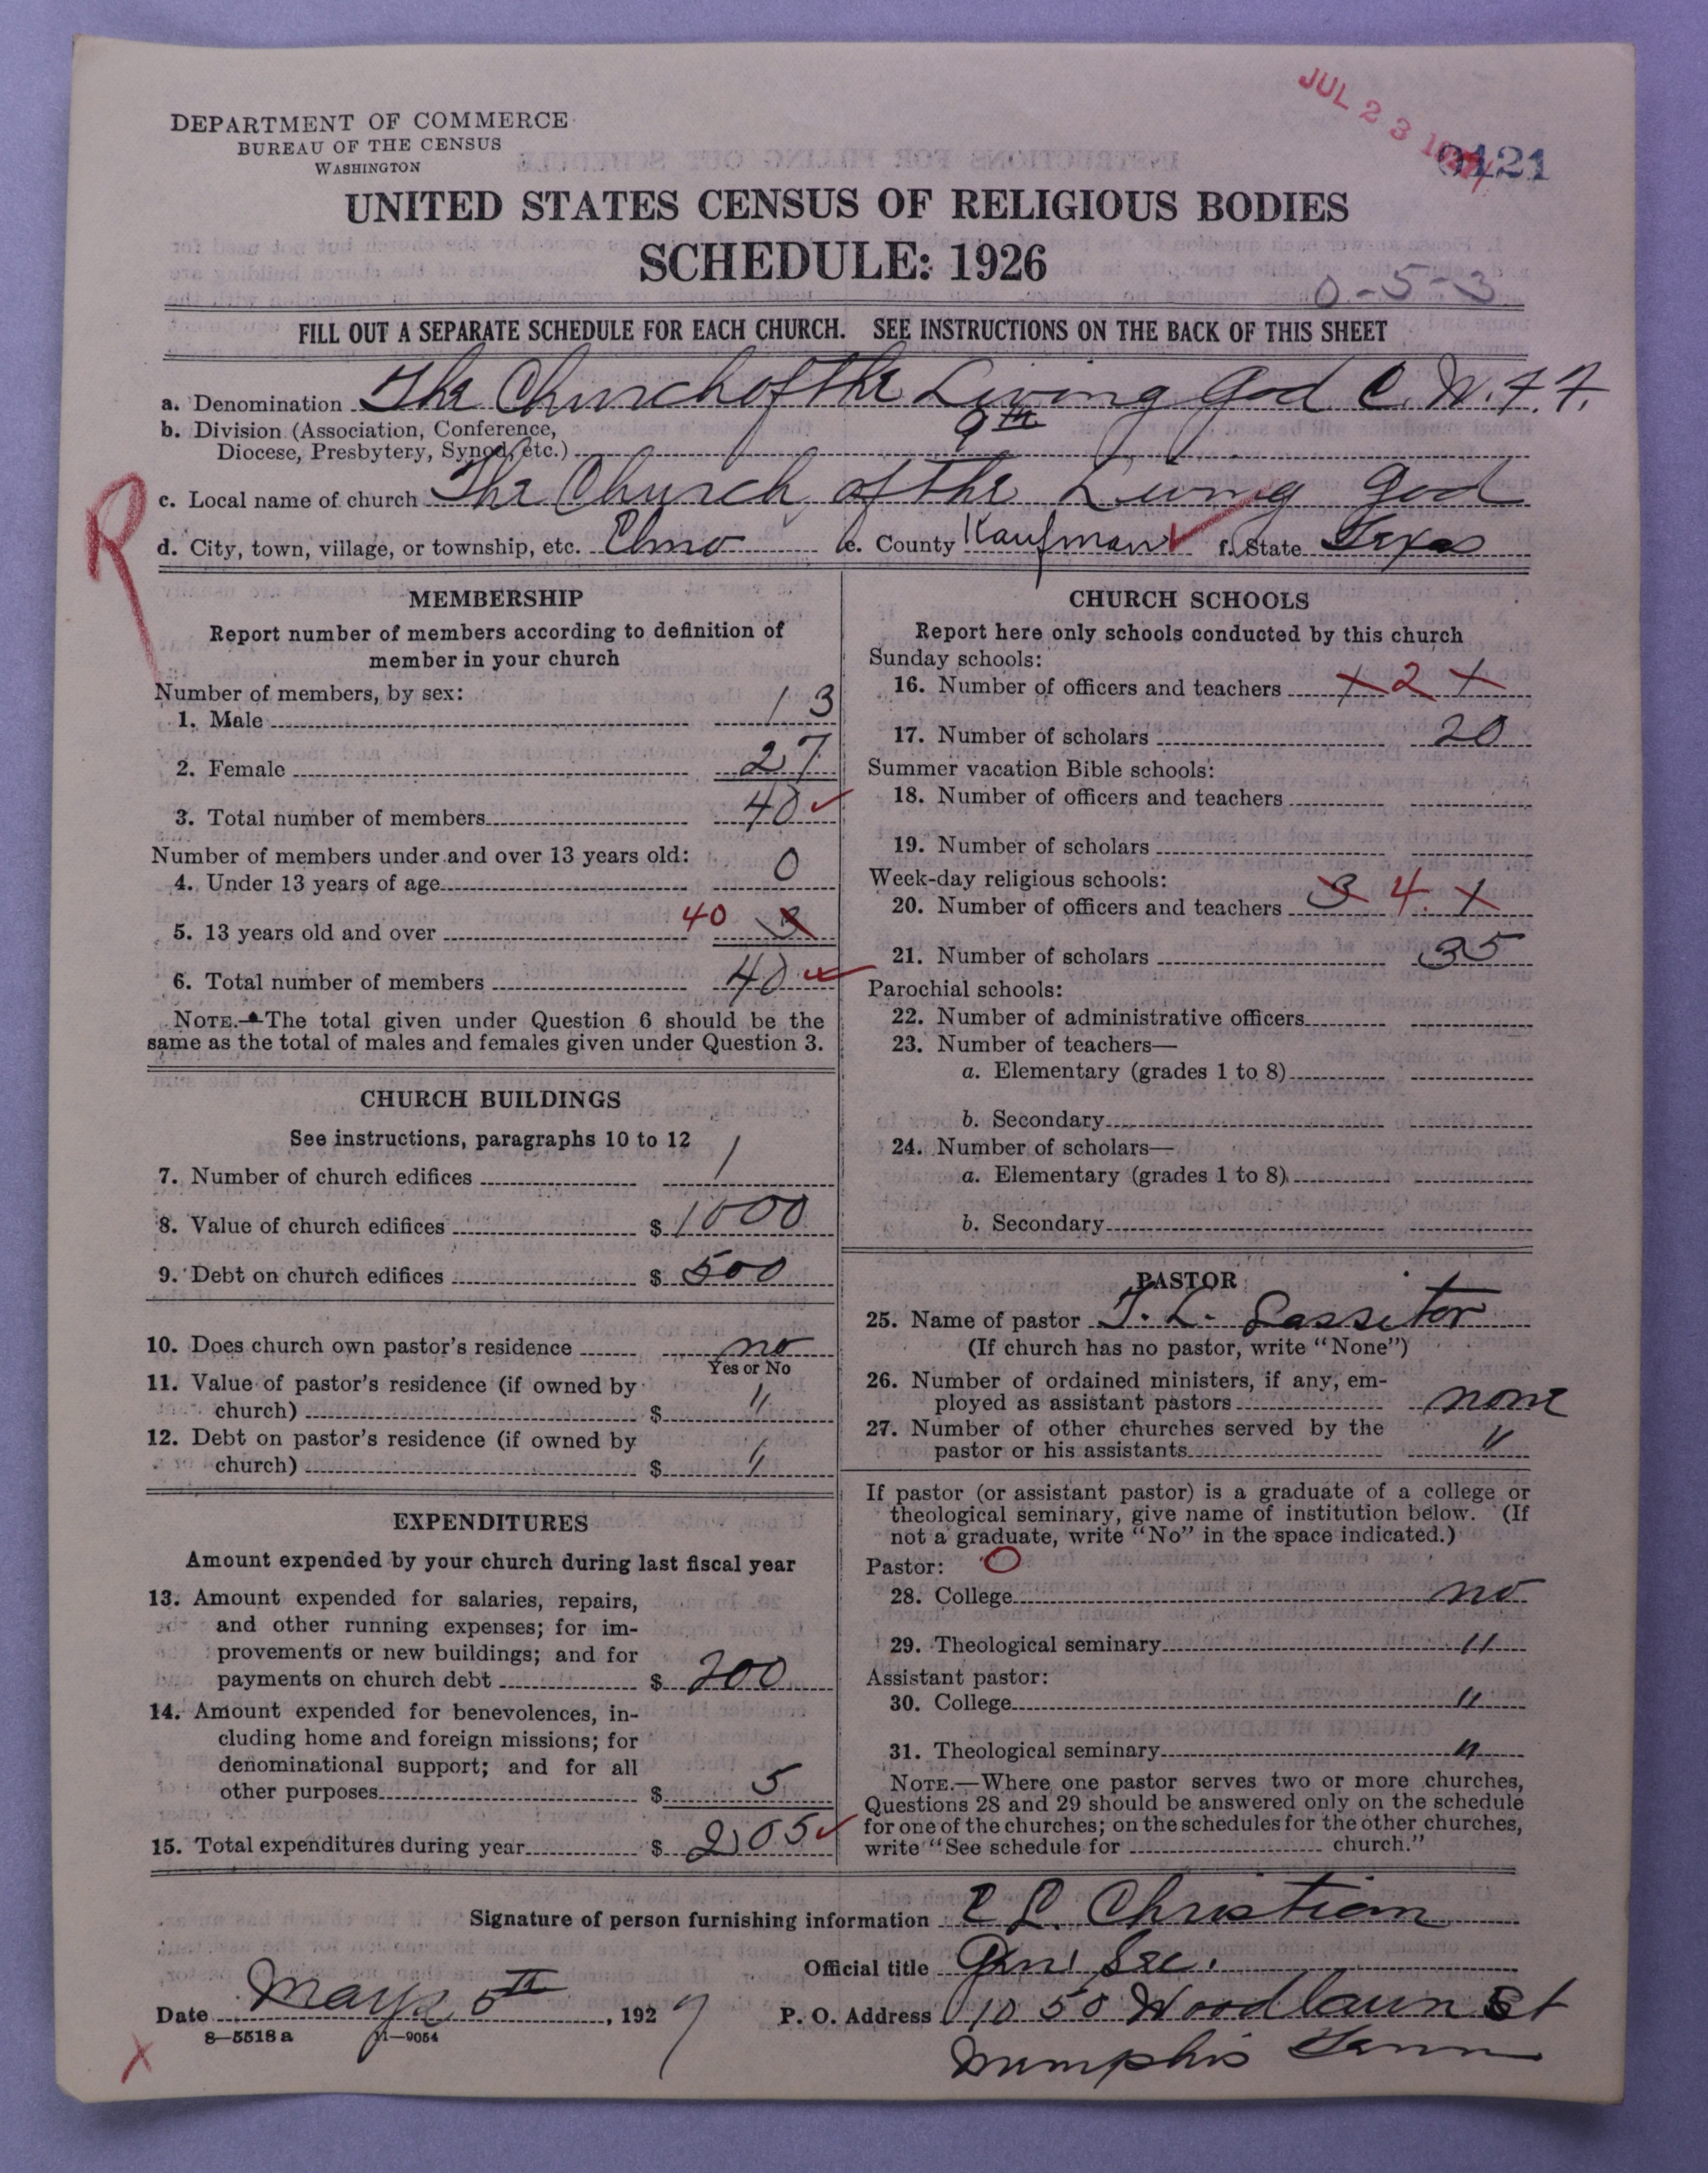 JUL 23 192
0121
DEPARTMENT OF COMMERCE
BUREAU OF THE CENSUS
WASHINGTON
UNITED STATES CENSUS OF RELIGIOUS BODIES
SCHEDULE: 1926
0-5-3
FILL OUT A SEPARATE SCHEDULE FOR EACH CHURCH. SEE INSTRUCTIONS ON THE BACK OF THIS SHEET
a. Denomination The Church of the Living God C. W. F. F.
b. Division (Association, Conference,
Diocese, Presbytery, Synod, etc.) 9th
c. Local name of church The Church of the Living God
R
d. City, town, village, or township, etc. Elmo e. County Kaufman f. State Texas
MEMBERSHIP
Report number of members according to definition of
member in your church
Number of members, by sex:
1. Male 13
2. Female 27
3. Total number of members 40
Number of members under and over 13 years old:
4. Under 13 years of age 0
5. 13 years old and over 40 3
6. Total number of members 40
NOTE.—The total given under Question 6 should be the
same as the total of males and females given under Question 3.
CHURCH BUILDINGS
See instructions, paragraphs 10 to 12
7. Number of church edifices 1
8. Value of church edifices $ 1000
9. Debt on church edifices $ 500
10. Does church own pastor's residence no
Yes or No
11. Value of pastor's residence (if owned by
church) $ "
12. Debt on pastor's residence (if owned by
church) $ "
EXPENDITURES
Amount expended by your church during last fiscal year
13. Amount expended for salaries, repairs,
and other running expenses; for im-
provements or new buildings; and for
payments on church debt $ 200
14. Amount expended for benevolences, in-
cluding home and foreign missions; for
denominational support; and for all
other purposes $ 5
15. Total expenditures during year $ 205
CHURCH SCHOOLS
Report here only schools conducted by this church
Sunday schools:
16. Number of officers and teachers x 2 x
17. Number of scholars 20
Summer vacation Bible schools:
18. Number of officers and teachers
19. Number of scholars
Week-day religious schools:
20. Number of officers and teachers 3 4 x
21. Number of scholars 35
Parochial schools:
22. Number of administrative officers
23. Number of teachers—
a. Elementary (grades 1 to 8)
b. Secondary
24. Number of scholars—
a. Elementary (grades 1 to 8)
b. Secondary
PASTOR
25. Name of pastor L.
(If church has no pastor, write "None")
26. Number of ordained ministers, if any, em-
ployed as assistant pastors none
27. Number of other churches served by the
pastor or his assistants "
If pastor (or assistant pastor) is a graduate of a college or
theological seminary, give name of institution below. (If
not a graduate, write "No" in the space indicated.)
Pastor: O
28. College no
29. Theological seminary "
Assistant pastor:
30. College "
31. Theological seminary "
NOTE.—Where one pastor serves two or more churches,
Questions 28 and 29 should be answered only on the schedule
for one of the churches; on the schedules for the other churches,
write "See schedule for church."
Signature of person furnishing information C L. Christian
Official title Gen Sec.
Date May 5th, 1927
P. O. Address 1050 Woodlawn St
Memphis Tenn
8—5518 a 11—9054
x